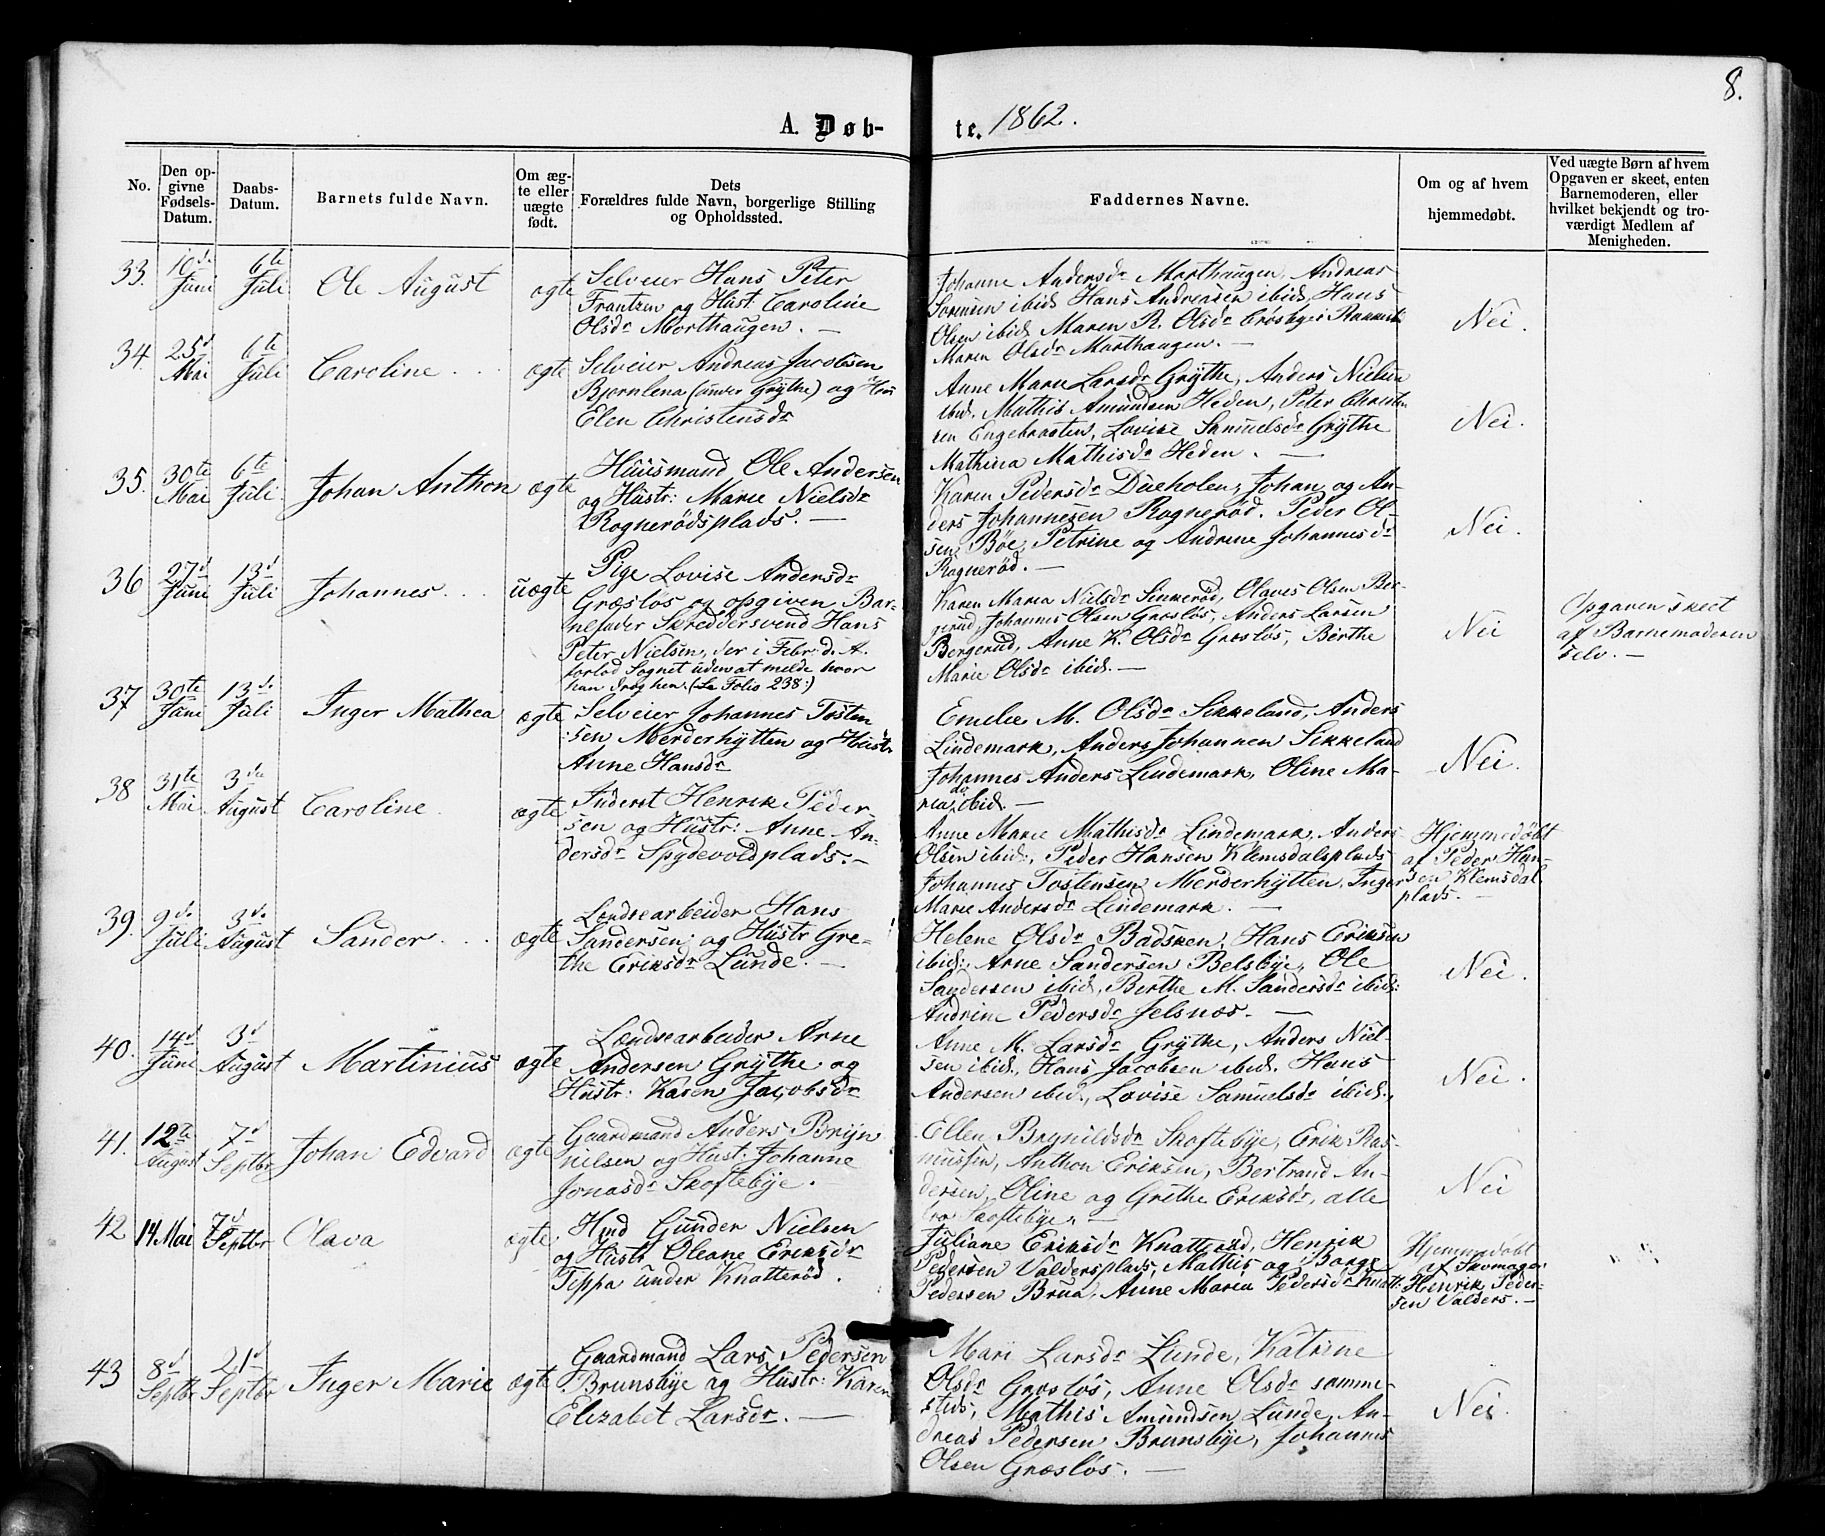 8.
A. Døb- te. 1862.
No.
Den op-
givne
Fødsels-
Datum.
Daabs-
Datum.
Barnets fulde Navn.
Om æg-
te eller
uægte
født.
Dets
Forældres fulde Navn, borgerlige Stilling
og Opholdssted.
Faddernes Navne.
Om og af hvem
hjemmedøbt.
Ved uægte Børn af hvem
Opgaven er skeet, enten
Barnemoderen, eller
hvilket bekjendt og tro-
værdigt Medlem af
Menigheden.
33.
10de
Juni
6te
Juli
Ole August
ægte
Selveier Hans Peter
Frantzen og Hust. Caroline
Olsdr Morthaugen. —
Johanne Andersdr Morthaugen, Andreas
Sørensen ibid. Hans Andreasen ibid, Hans
Olsen ibid, Maren R. Olsdr Grøsbye i
Maren Olsdr Morthaugen. —
Nei.
34.
25d
Mai
6te
Juli
Caroline . . .
ægte
Selveier Andreas Jacobsen
Bjørnlena (under Grythe) og Hus
Elen Christensdr
Anne Marie Larsdr Grythe, Anders Nielsen
ibid. Mathis Amundsen Heden, Peter Christen
sen Engebraaten, Lovise Samuelsdr Grythe
Mathea Mathisdr Heden. —
Nei.
35.
30te
Mai
6te
Juli.
Johan Anthon
ægte
Huusmand Ole Andersen
og Hustr: Marie Nielsdr
Rognerødsplads. —
Karen Pedersdr Dueholen, Johan og An-
ders Johannesen Rognerød. Peder Ol-
sen Bøe, Petrine og Andrine Johannesdr
Rognerød. —
Nei.
36
27d
Juni
13d
Juli
Johannes . . .
uægte
Pige Lovise Andersdr
Græsløs og opgiven Bar-
nefader Skreddersvend Hans
Peter Nielsen, der i Febr. d. A.
forlod Sognet uden at melde hvor
han drog hen. (Se Folio 238.)
Karen Maria Nielsdr Sinkerød, Olaves Olsen Ber-
gerud, Johannes Olsen Græsløs, Anders Larsen
Bergerud, Anne K. Olsdr Græsløs, Berthe
Marie Olsdr ibid. —
Nei
Opgaven skeet
af Barnemoderen
selv. —
37
30te
Juni
13de
Juli
Inger Mathea
ægte
Selveier Johannes Tosten
sen Merderhytten og Hustr.
Anne Hansdr
Emelie M. Olsdr Sikkeland, Anders
Lindemark, Anders Johannen Sikkeland
Johannes Anders Lindemark, Oline Ma-
rea, ibid. —
Nei.
38
31te
Mai
3de
August
Caroline .
ægte
Inderst Henrik Peder
sen og Hustr: Anne An-
dersdr Spydevoldplads. —
Anne Marie Mathisdr Lindemark, Anders
Olsen ibid., Peder Hansen Klemsdalsplads
Johannes Tostensen Merderhytten, Inger
Marie Andersdr Lindemark. —
Hjemmedøbt
af Peder Han-
sen Klemsdal
plads. —
39.
9de
Juli
3de
August
Sander . . .
ægte
Landsearbeider Hans
Sandersen og Hustr Gre-
the Eriksdr Lunde. —
Helene Olsdr Badsken, Hans Eriksen
ibid:, Arne Sandersen Belsbye, Ole
Sandersen ibid, Berthe M. Sandersdr ibid:
Andrine Pedersdr Jelsnæs. —
Nei.
40.
14d
Juni
3d
August
Martinius
ægte
Lændsearbeider Arne
Andersen Grythe og
Hustr: Karen Jacobsdr
Anne M. Larsdr Grythe, Anders Niel-
sen ibid., Hans Jacobsen ibid. Hans
Andersen ibid., Lovise Samuelsdr ibid.,
Nei.
41.
12te
August
7d
Septbr
Johan Edvard
ægte
Gaardmand Anders Bryn
nielsen og Hust. Johanne
Jonasdr Skoftebye. —
Ellen Brynildsdr Skoftebye, Erik Ras-
mussen, Anthon Eriksen, Bertrand An-
dersen, Oline og Grethe Eriksdr, alle
fra Skoftebye. —
Nei
42
14 Mai
7d
Septbr
Olava
ægte
Hmd Gunder Nielsen
og Hustr Oleane Eriksdr
Tippa under Knatterød.
Juliane Eriksdr Knatterød, Henrik
Pedersen Valdersplads, Mathis og Børge
Pedersen Brua, Anne Maria Pedersdr Knatt.
Hjemmedøbt
af Skomager
Henrik Peder-
sen Valders. —
43
8d
Septbr
21d
Septbr
Inger Marie
ægte
Gaardmand Lars Pedersen
Brunsbye og Hustr: Karen
Elizabet Larsdr. —
Mari Larsdr Lunde, Katrine
Olsdr Græsløs, Anne Olsdr samme-
steds, Mathis Amundsen Lunde, An-
dreas Pedersen Brunsbye, Johannes
Olsen Græsløs. —
Nei.